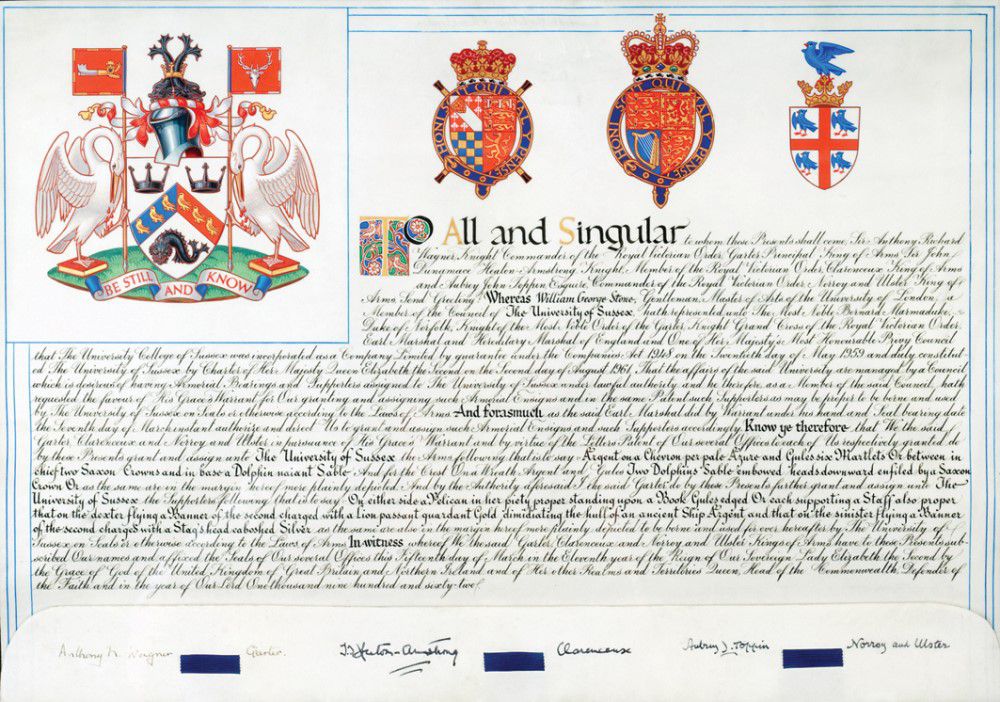 BE STILL AND KNOW
HONI SOIT QUI MAL Y PENSE
HONI SOIT QUI MAL Y PENSE
To All and Singular to whom these Presents shall come Sir Anthony Richard
Wagner Knight Commander of the Royal Victorian Order Garter Principal King of Arms Sir John
Dunamace Heaton-Armstrong Knight, Member of the Royal Victorian Order Clarenceux King of Arms
and Aubrey John Toppin Esquire, Commander of the Royal Victorian Order, Norroy and Ulster King of
Arms Send Greeting Whereas William George Stone, Gentleman, Master of Arts of the University of London, a
Member of the Council of The University of Sussex, hath represented unto The Most Noble Bernard Marmaduke,
Duke of Norfolk, Knight of the Most Noble Order of the Garter, Knight Grand Cross of the Royal Victorian Order,
Earl Marshal and Hereditary Marshal of England and One of Her Majesty's Most Honourable Privy Council
that The University College of Sussex was incorporated as a Company Limited by guarantee under the Companies Act 1948 on the Twentieth day of May 1959 and duly constitut-
ed The University of Sussex by Charter of Her Majesty Queen Elizabeth the Second on the Second day of August 1961 That the affairs of the said University are managed by a Council
which is desirous of having Armorial Bearings and Supporters assigned to The University of Sussex under lawful authority and he therefore, as a Member of the said Council, hath
requested the favour of His Grace's Warrant for Our granting and assigning such Armorial Ensigns and in the same Patent such Supporters as may be proper to be borne and used
by The University of Sussex on Seals or otherwise according to the Laws of Arms And forasmuch as the said Earl Marshal did by Warrant under his hand and Seal bearing date
the Seventh day of March instant authorize and direct Us to grant and assign such Armorial Ensigns and such Supporters accordingly Know ye therefore that We the said
Garter Clarenceux and Norroy and Ulster in pursuance of His Grace's Warrant and by virtue of the Letters Patent of Our several Offices to each of Us respectively granted do
by these Presents grant and assign unto The University of Sussex the Arms following that is to say Argent on a Chevron per pale Azure and Gules six Martlets Or between in
chief two Saxon Crowns and in base a Dolphin naiant Sable And for the Crest On a Wreath Argent and Gules Two Dolphins Sable embowed heads downward enfiled by a Saxon
Crown Or as the same are in the margin hereof more plainly depicted And by the Authority aforesaid I the said Garter do by these Presents further grant and assign unto The
University of Sussex the Supporters following that is to say On either side a Pelican in her piety proper standing upon a Book Gules edged Or each supporting a Staff also proper
that on the dexter flying a Banner of the second charged with a Lion passant guardant Gold dimidiating the hull of an ancient Ship Argent and that on the sinister flying a Banner
of the second charged with a Stag's head caboshed Silver as the same are also in the margin hereof more plainly depicted to be borne and used for ever hereafter by The University of
Sussex on Seals or otherwise according to the Laws of Arms In witness whereof We the said Garter, Clarenceux and Norroy and Ulster Kings of Arms have to these Presents sub-
scribed Our names and affixed the Seals of Our several Offices this Fifteenth day of March in the Eleventh year of the Reign of Our Sovereign Lady Elizabeth the Second by
the Grace of God of the United Kingdom of Great Britain and Northern Ireland and of Her other Realms and Territories Queen, Head of the Commonwealth, Defender of
the Faith and in the year of Our Lord One thousand nine hundred and sixty-two.
Anthony R. Wagner Garter. J D Heaton-Armstrong Clarenceux Aubrey J. Toppin Norroy and Ulster